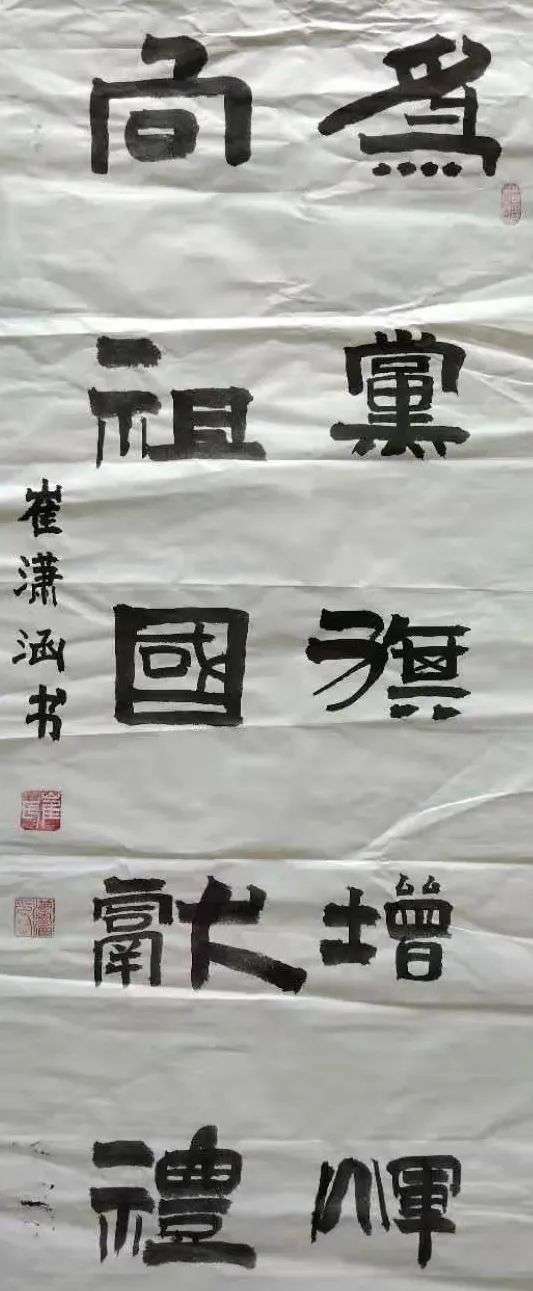 為黨旗增輝
向祖國獻禮
崔潇涵书